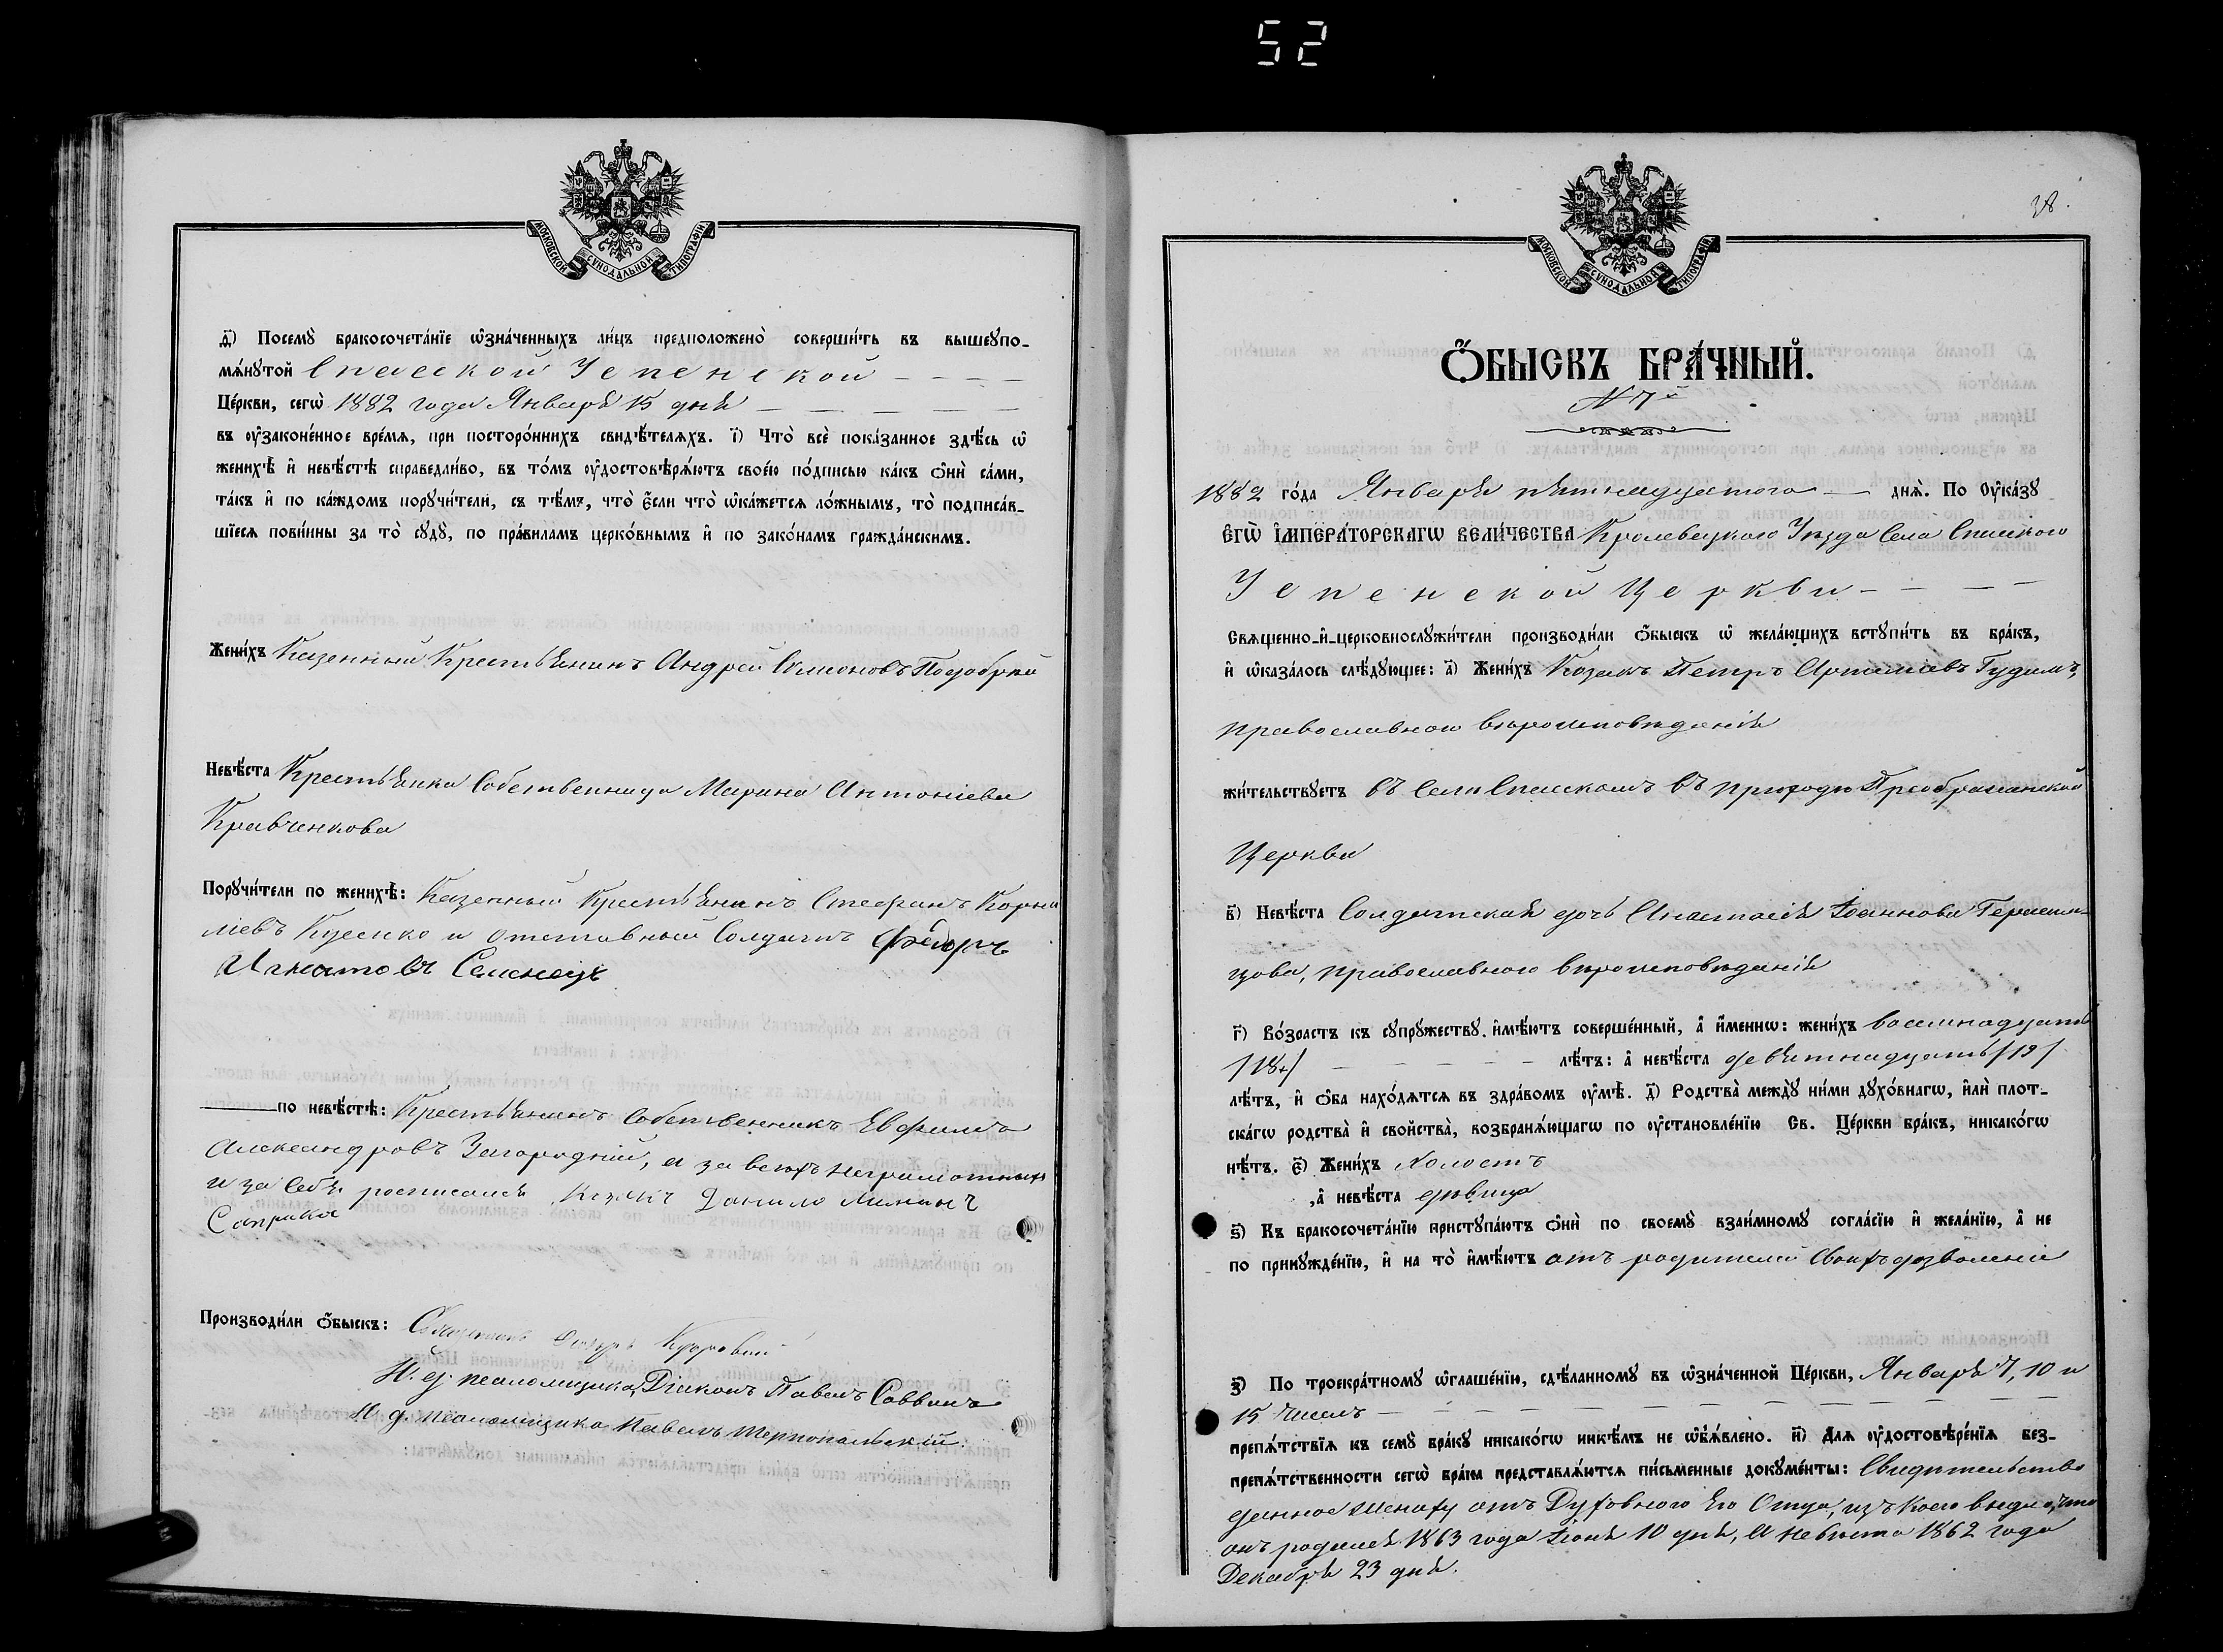 52
МОСКОВСКОЙ СѴНОДАЛЬНОЙ ТИПОГРАФІИ
д҃) Посемꙋ̀ бракосочета́нїе ѡ҆зна́ченныхъ ли́цъ предположено̀ соверши́ть въ вышеꙋпо-
мѧ́нꙋтой Спасской Успенской
Це́ркви, сегѡ̀ 1882 года Января 15 дня
въ ᲂу҆зако́ненное вре́мѧ, при посторо́ннихъ свидѣ́телѧхъ. і҃) Что̀ всѐ пока́занное здѣ́сь ѡ҆
женихѣ̀ и҆ невѣ́стѣ справедли́во, въ то́мъ ᲂу҆достовѣрѧ́ютъ свое́ю по́дписью ка́къ ѻ҆нѝ са́ми,
та́къ и҆ по ка́ждомъ порꙋчи́тели, съ тѣ́мъ, что̀ є҆́сли что̀ ѡ҆ка́жется ло́жнымъ, то̀ подписа́в-
шїеся пови́нны за то̀ сꙋдꙋ̀, по пра́виламъ церко́внымъ и҆ по зако́намъ гражда́нскимъ.
Жени́хъ Казенный Крестьянинъ Андрей Симеоновъ
Невѣ́ста Крестьянка Собственница Марина Антоніева
Кравченкова
Порꙋчи́тели по женихѣ̀: Казенный Крестьянинъ Стефанъ Корни
ліевъ Кусенко и отставный Солдатъ Феодоръ
Игнатовъ Семенецъ
по невѣ́стѣ: Крестьянинъ Собственникъ Евфимъ
Александровъ Загородній, а за всехъ неграмотныхъ
и за себя росписался Козакъ Данило
Саприка
Производи́ли ѻ҆́быскъ: Священникъ
И. д. псаломщика Діаконъ Павелъ Саввинъ
И. д. псаломщика Павелъ Тернопольскій.
38.
МОСКОВСКОЙ СѴНОДАЛЬНОЙ ТИПОГРАФІИ
Ѻ҆́БЫСКЪ БРА́ЧНЫЙ.
№ 7й
1882 го́да Января пятнадцатого дня̀. По Оу҆ка́зꙋ
ЄГѠ̀ І҆МПЕРА́ТОРСКАГѠ ВЕЛИ́ЧЕСТВА Кролевецкого Уѣзда Села Спаского
Успенской Церкви
Свѧщенно-и҆-церковнослꙋжи́тели производи́ли ѻ҆́быскъ ѡ҆ жела́ющихъ встꙋпи́ть въ бра́къ,
и҆ ѡ҆каза́лось слѣ́дꙋющее: а҃) Жени́хъ Козакъ Петръ Артемиевъ Гудимъ,
православного вѣроисповѣданія
жи́тельствꙋетъ въ Селѣ Спаскомъ въ приходѣ Преображанской
Церкви
в҃) Невѣ́ста Солдатская дочь Анастасія Іоаннова Герасим-
цова, православного вѣроисповѣданія
г҃) Во́зрастъ къ сꙋпрꙋ́жествꙋ и҆мѣ́ютъ соверше́нный, а҆ и҆́меннѡ: жени́хъ восемнадцать
/18/ лѣ́тъ: а҆ невѣ́ста девятнадцать /19/
лѣ́тъ, и҆ ѻ҆́ба нахо́дѧтся въ здра́вомъ ᲂу҆мѣ̀. д҃) Родства̀ междꙋ̀ ни́ми дꙋхо́внагѡ, и҆лѝ плот-
ска́гѡ родства̀ и҆ сво́йства, возбранѧ́ющагѡ по ᲂу҆становле́нїю Св. Це́ркви бра́къ, никако́гѡ
нѣ́тъ. є҃) Жени́хъ холостъ
,а҆ невѣ́ста дѣвица
ѕ҃) Къ бракосочета́нїю пристꙋпа́ютъ ѻ҆нѝ по своемꙋ̀ взаи́мномꙋ согла́сїю и҆ жела́нїю, а҆ не
по принꙋжде́нїю, и҆ на то̀ и҆мѣ́ютъ отъ родителей Своихъ дозволеніе
з҃) По троекра́тномꙋ ѡ҆глаше́нїю, сдѣ́ланномꙋ въ ѡ҆зна́ченной Це́ркви, Января 7, 10 и
15 чиселъ
препѧ́тствїѧ къ семꙋ̀ бра́кꙋ никако́гѡ никѣ́мъ не ѡ҆бъѧ́влено. и҃) Длѧ ᲂу҆достовѣре́нїѧ без-
препѧ́тственности сегѡ̀ бра́ка представлѧ́ются пи́сьменные докꙋме́нты: Свидѣтельство
данное жениху отъ Духовного Его Отца, изъ коего видно, что
онъ родился 1863 года Іюня 10 дня, а невѣста 1862 года
Декабря 23 дня.